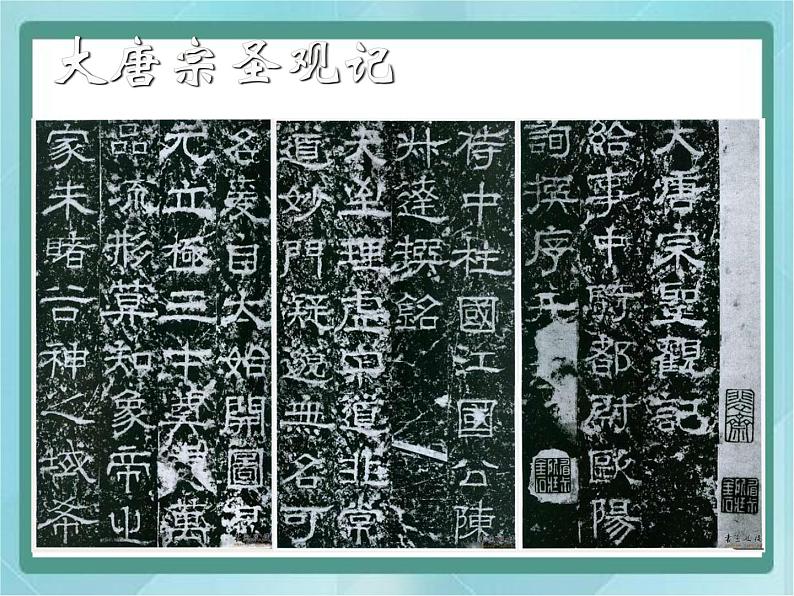 大唐宗圣观记
大唐宗聖觀記
給事中騎都尉歐陽
詢撰序
侍中柱國江國公陳
叔達撰銘
夫至理虛寂道非常
道妙門疑邈無名可
名爰自太始開圖
元立極三才奠萬
品流形莫知象帝之
家未睹谷神之域希